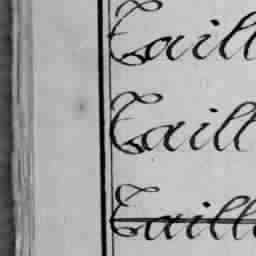 Taill
Taill
Taill